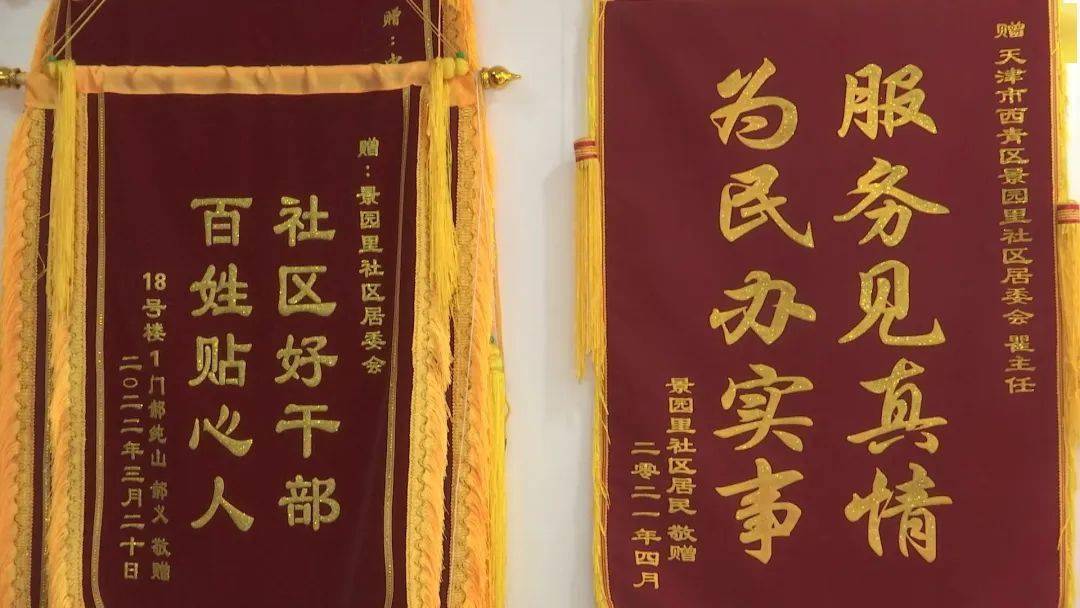 赠：
赠：景园里社区居委会
社区好干部
百姓贴心人
18号楼1门郝纯山 郝义 敬赠
二〇二二年三月二十日
赠 天津市西青区景园里社区居委会 翟主任
服务见真情
为民办实事
景园里社区居民 敬赠
二零二一年四月